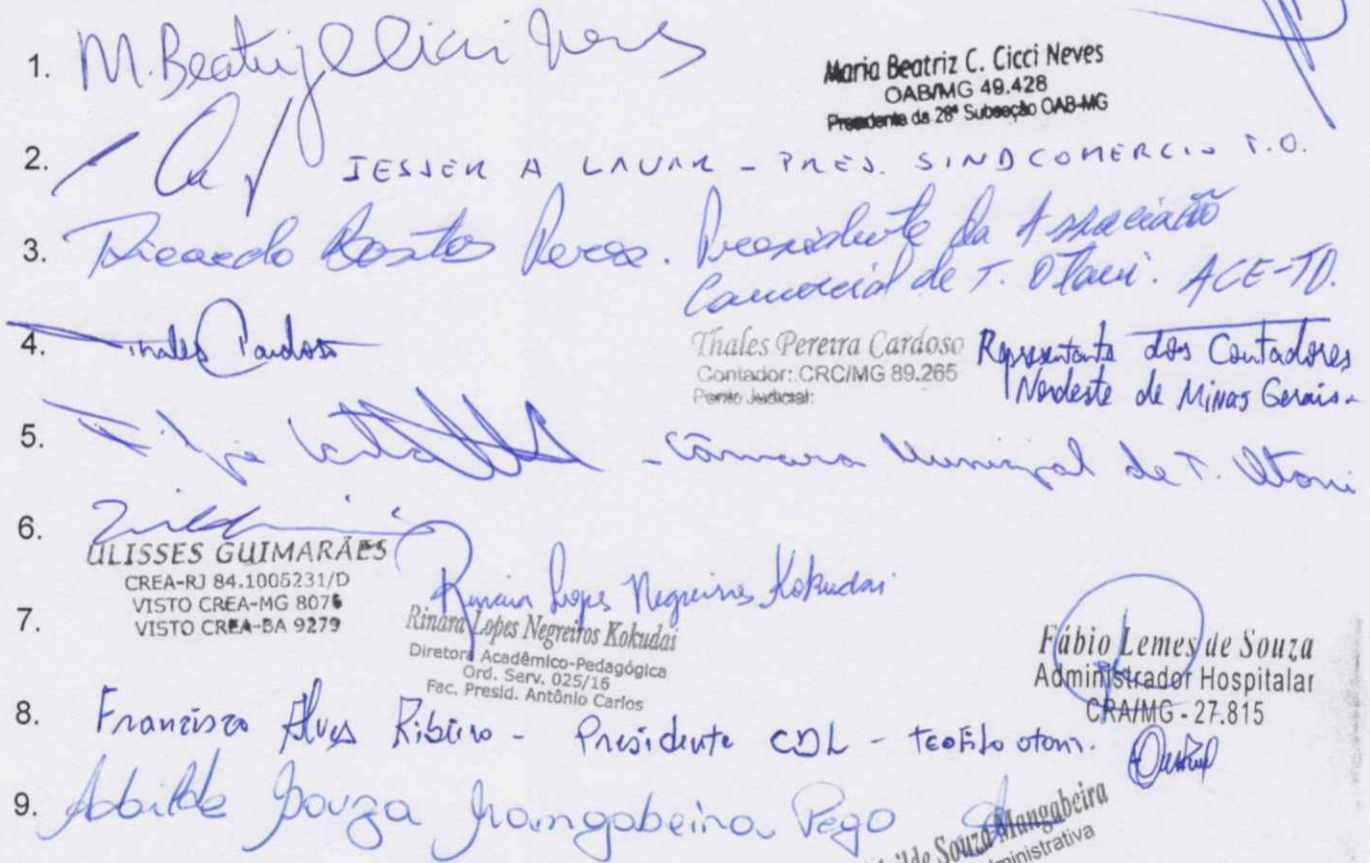 1. M. Beatriz Cicci Neves
Maria Beatriz C. Cicci Neves
OAB/MG 49.428
Presidente da 28ª Subseção OAB-MG
2. JESSER A LAUAR - PRES. SINDCOMERCIO T.O.
3. Ricardo Bastos Peres. Presidente da Associação
Comercial de T. Otoni. ACE-TO.
4. Thales Cardoso
Thales Pereira Cardoso
Contador: CRC/MG 89.265
Perito Judicial:
Representante dos Contadores
Nordeste de Minas Gerais.
5. - Câmara Municipal de T. Otoni
6.
ULISSES GUIMARÃES
CREA-RJ 84.1005231/D
VISTO CREA-MG 8076
VISTO CREA-BA 9279
7. Rinara Lopes Negreiros Kokudai
Rinara Lopes Negreiros Kokudai
Diretora Acadêmico-Pedagógica
Ord. Serv. 025/16
Fac. Presid. Antônio Carlos
Fábio Lemes de Souza
Administrador Hospitalar
CRA/MG - 27.815
8. Francisco Alves Ribeiro - Presidente CDL - Teofilo otoni.
9. Souza Mangabeira Pego
Souza Mangabeira